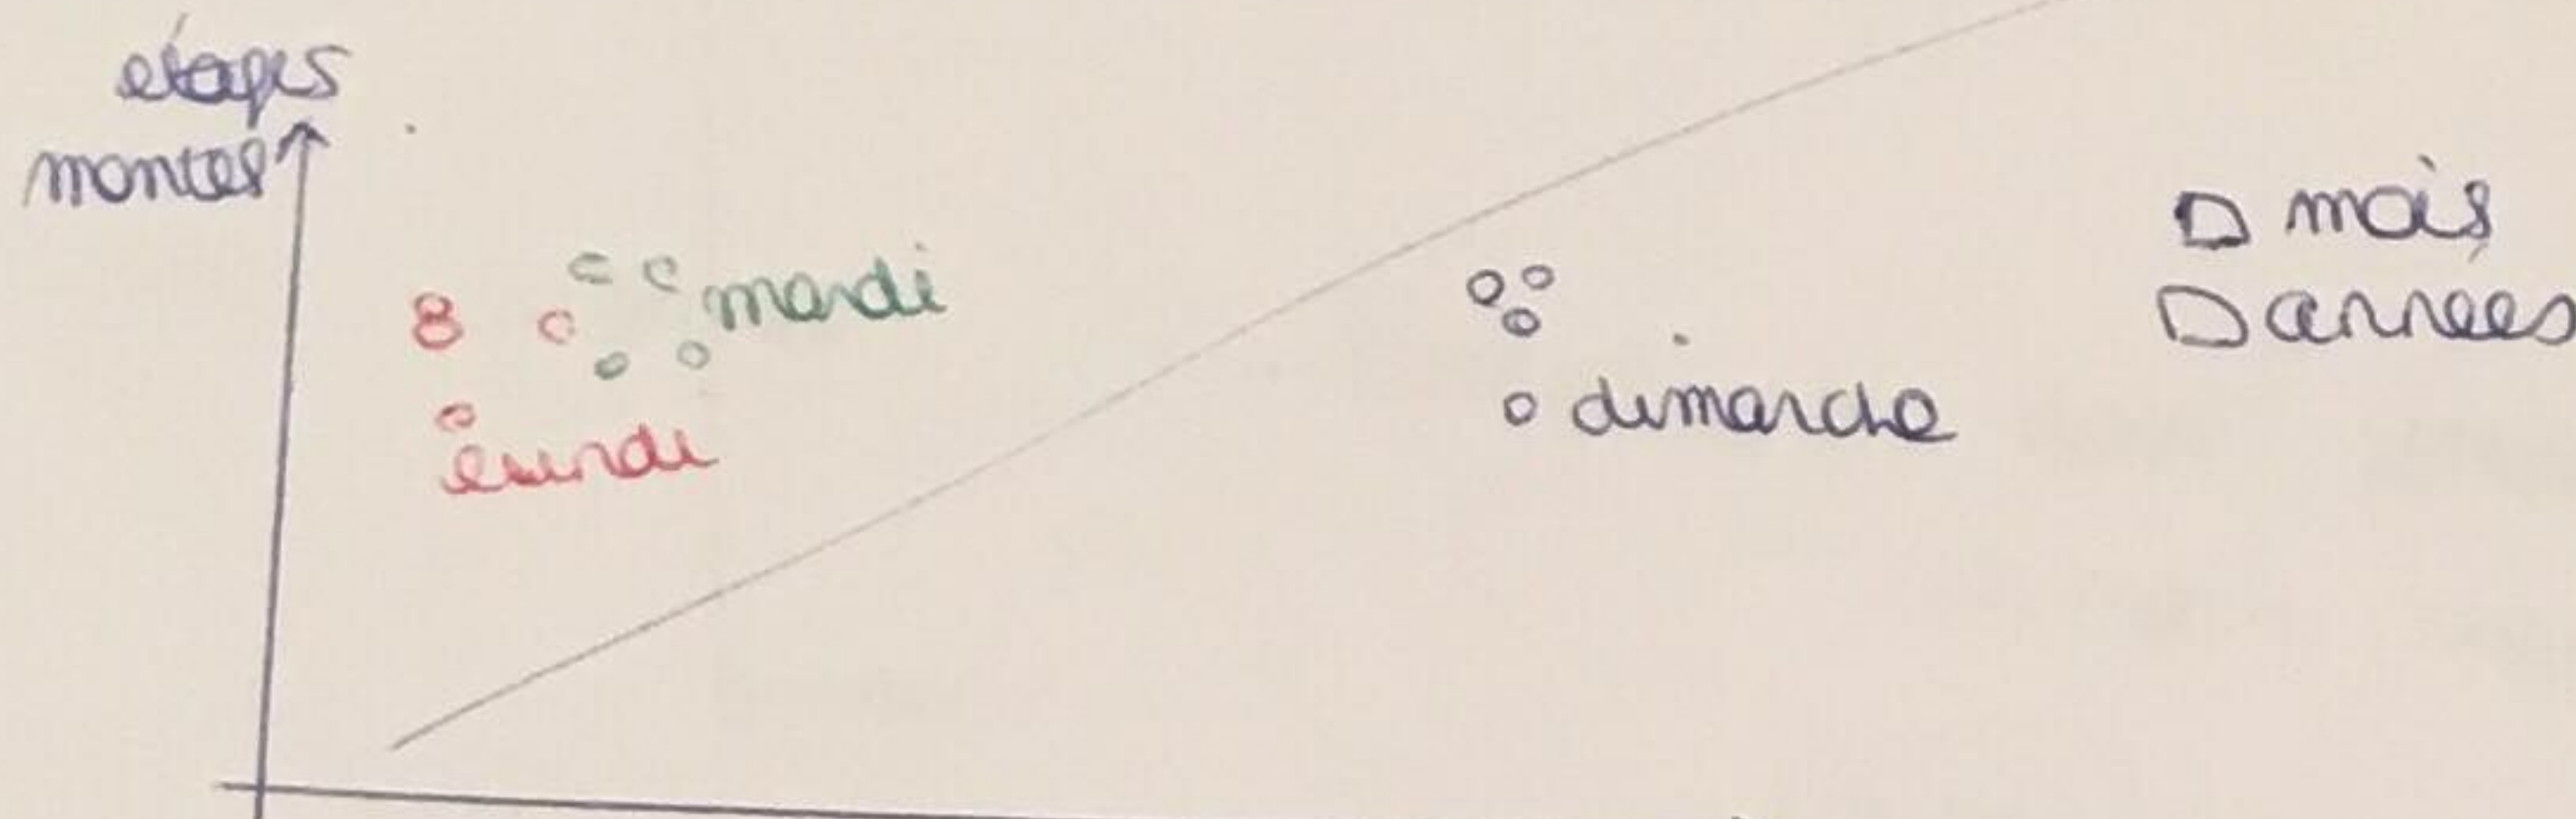 étages
montés
mardi
lundi
dimanche
mois
années